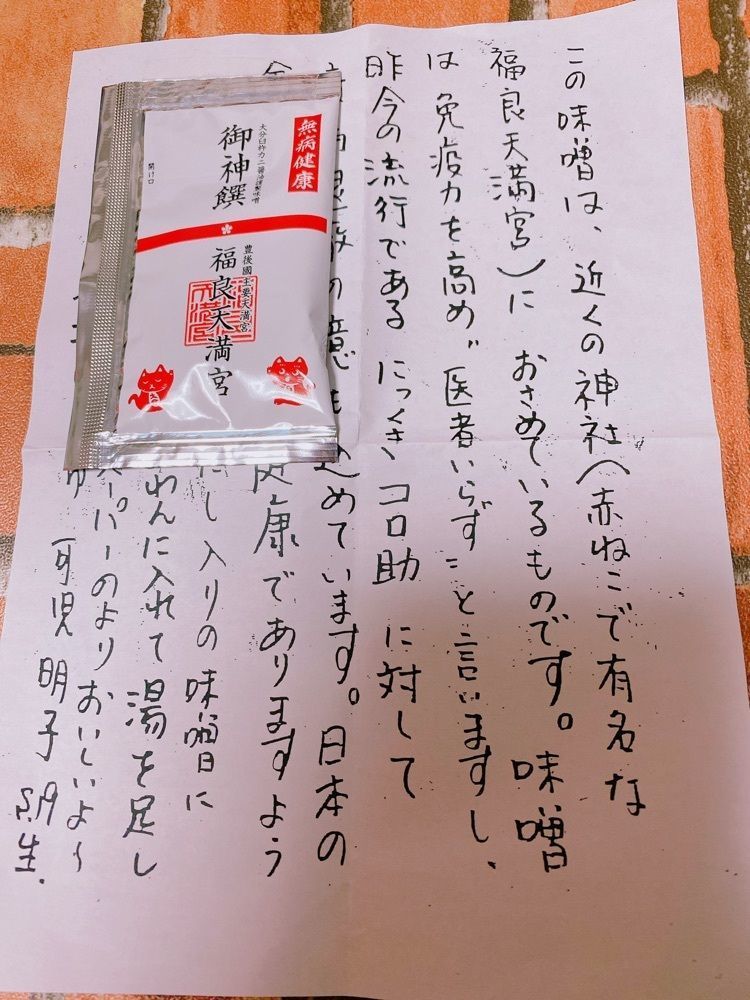 この味噌は、近くの神社(赤ねこで有名な
福良天満宮)に おさめているものです。味噌
は 免疫力を高め〝医者いらず〟と言いますし、
昨今の流行である にっくき コロ助 に対して
の意も込めています。日本の
健康でありますよう
だし入りの味噌に
わんに入れて湯を足し
スーパーのよりおいしいよ〜
可児 明子
無病健康
大分臼杵カニ醤油謹製味噌
御神饌
開け口
豊後國主要天満宮
福良天満宮